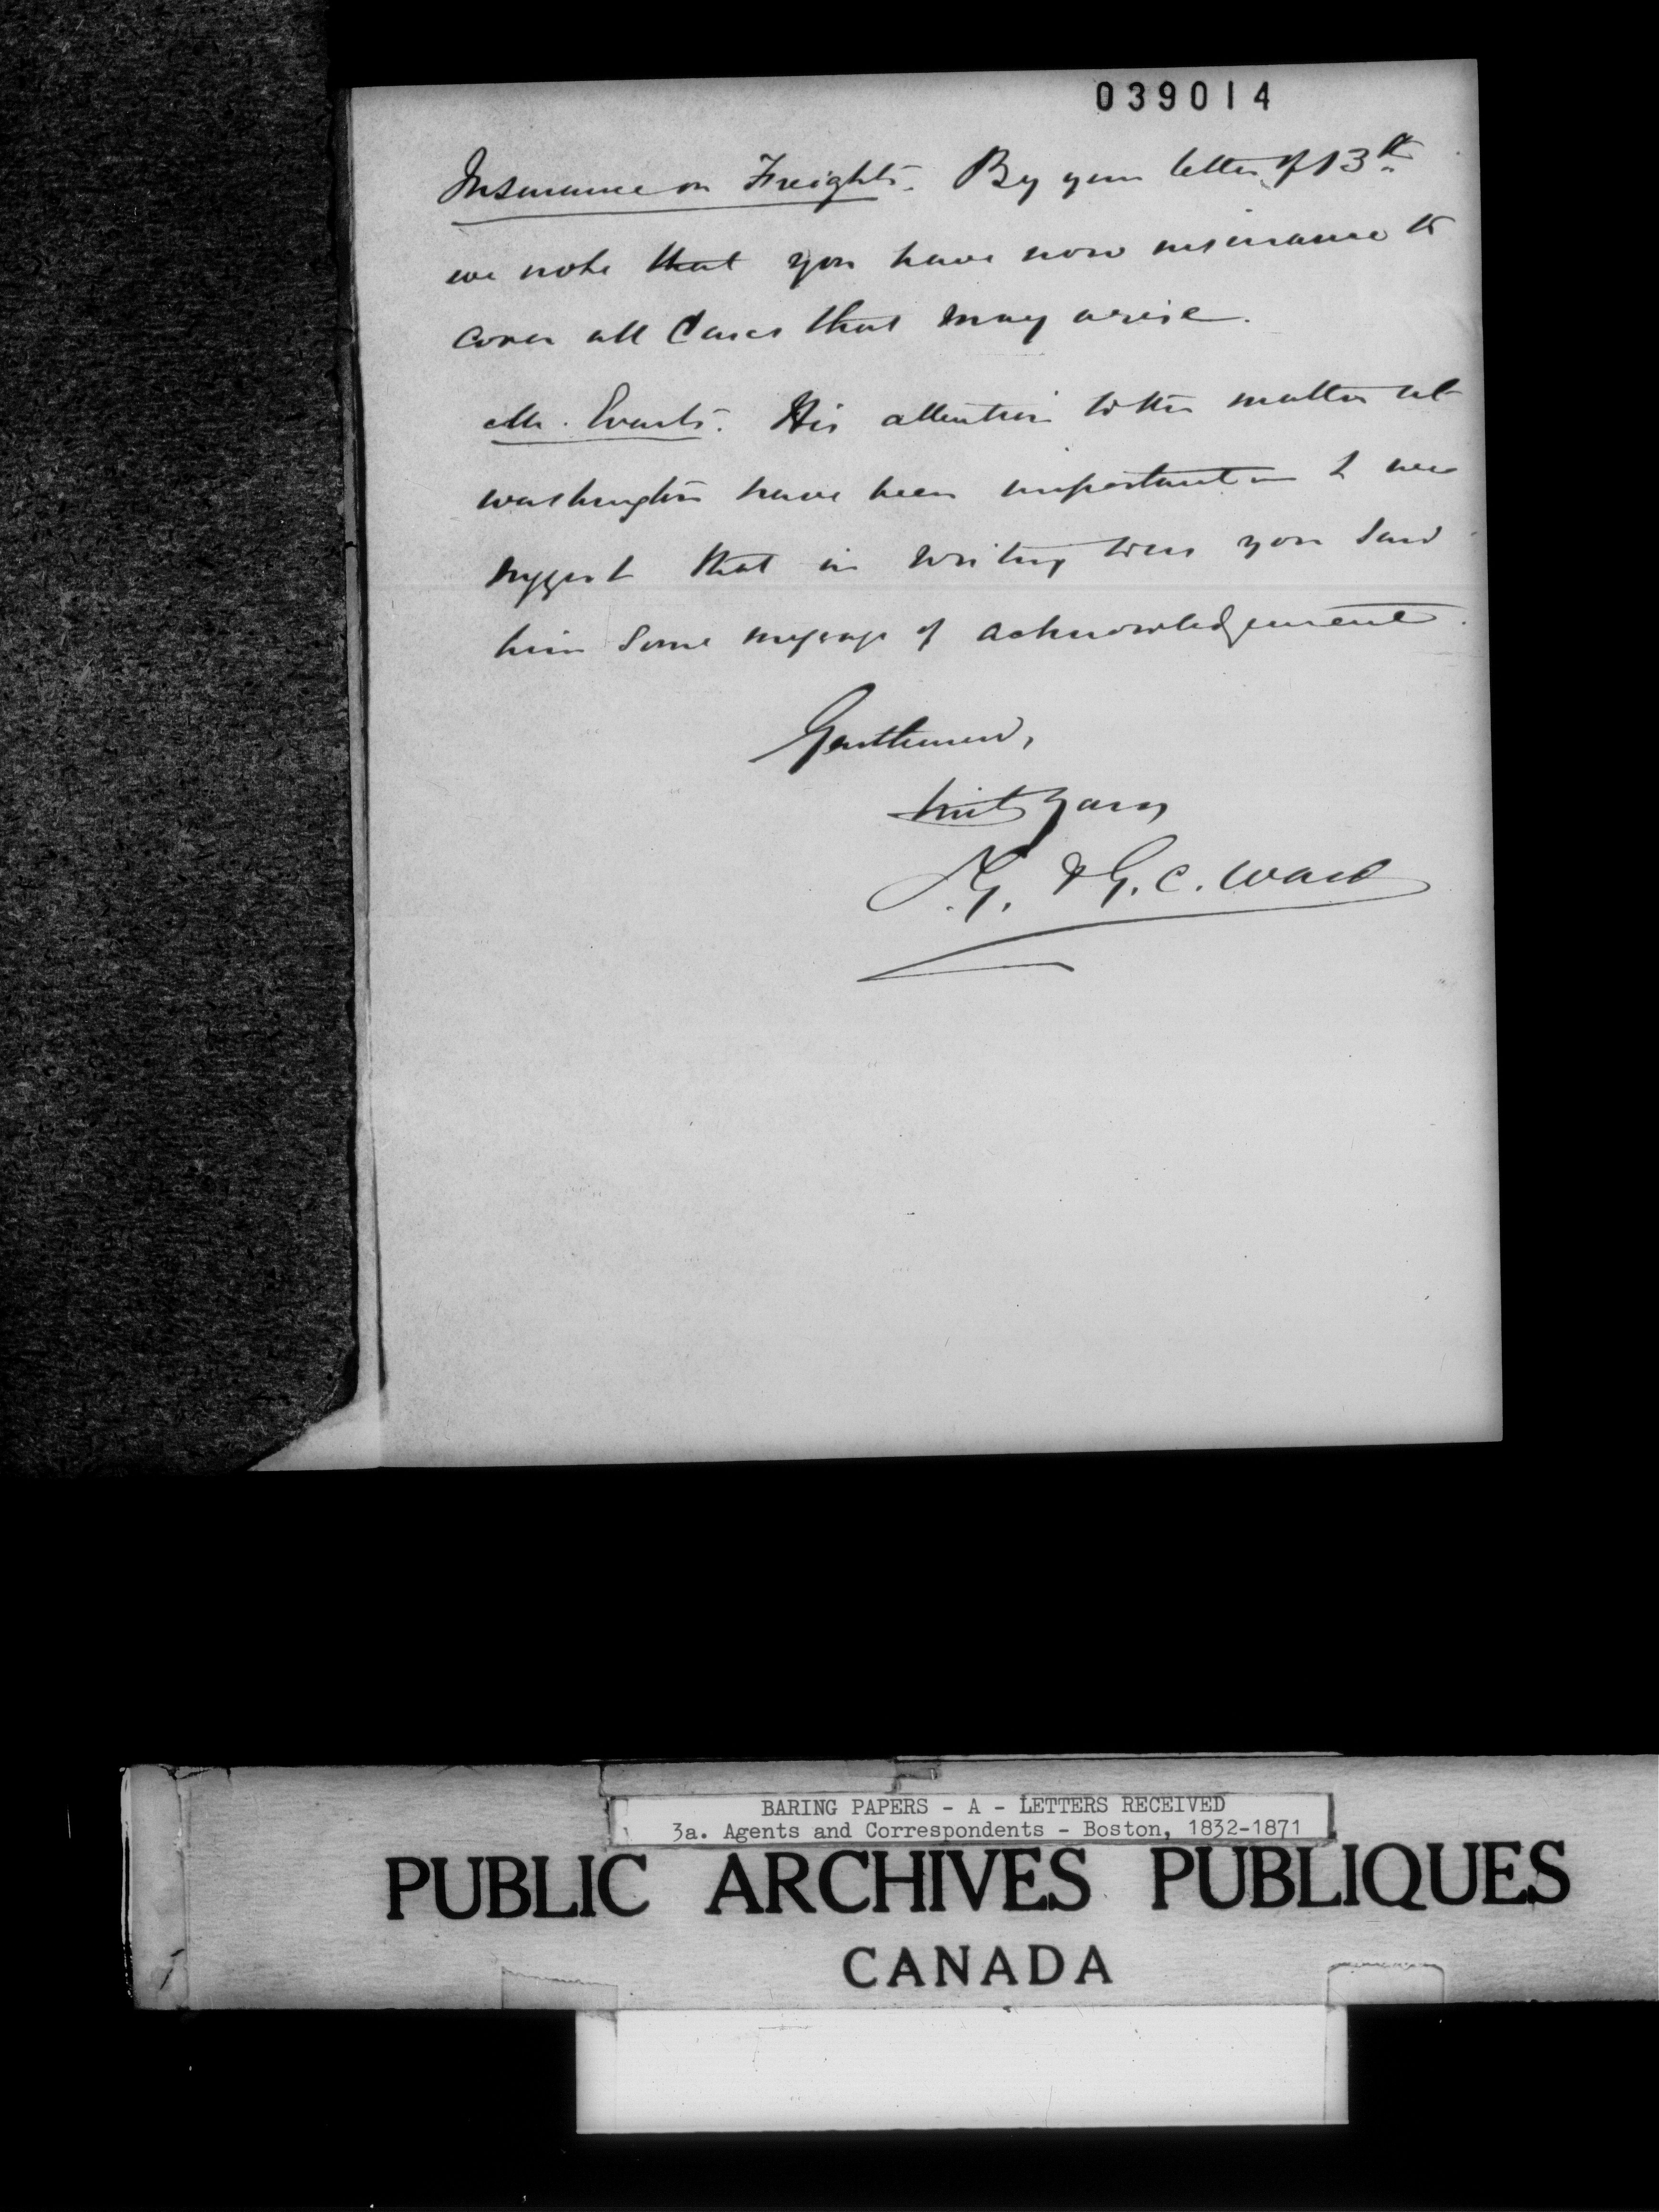 039014
Insurance on Freights. By your letter of 13th
we note that you have now insurance to
cover all Cases that may arise.
Mr. Evarts. His attention to the matter at
Washington have been important I
suggest that in writing you send
him some message of acknowledgement.
Gentlemen,
Yours
S. G. & G. C. Ward
BARING PAPERS - A - LETTERS RECEIVED
3a. Agents and Correspondents - Boston, 1832-1871
PUBLIC ARCHIVES PUBLIQUES
CANADA